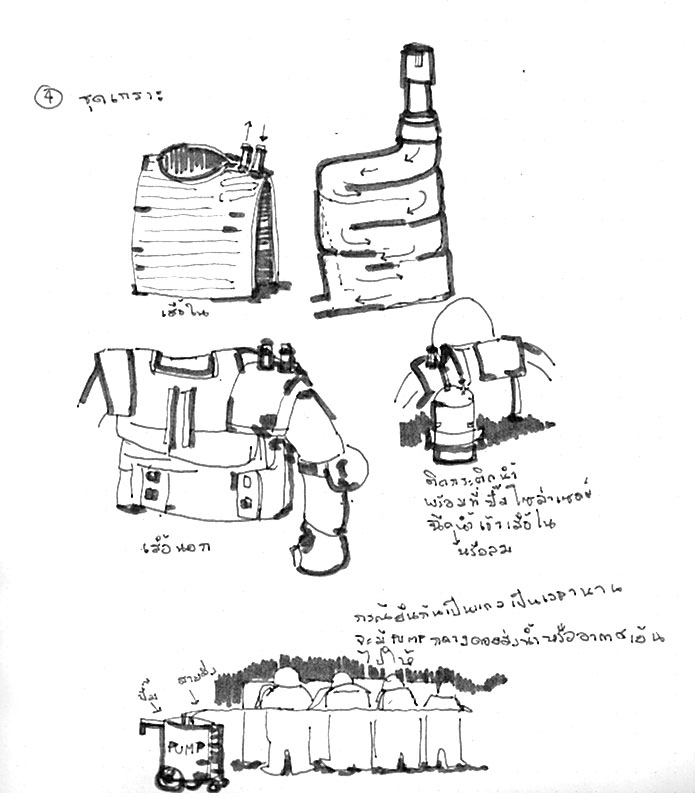 4 ชุดเกราะ
เสื้อใน
เสื้อนอก
ติดกระติกน้ำ
พร้อมที่ปั๊มโซล่าเซลล์
ฉีดน้ำเข้าเสื้อใน
หรือลม
กรณียืนกันเป็นแถวเป็นเวลานาน
จะมี PUMP กลางคอยส่งน้ำหรืออากาศเย็น
ไปให้
ปั๊ม
สายส่ง
PUMP